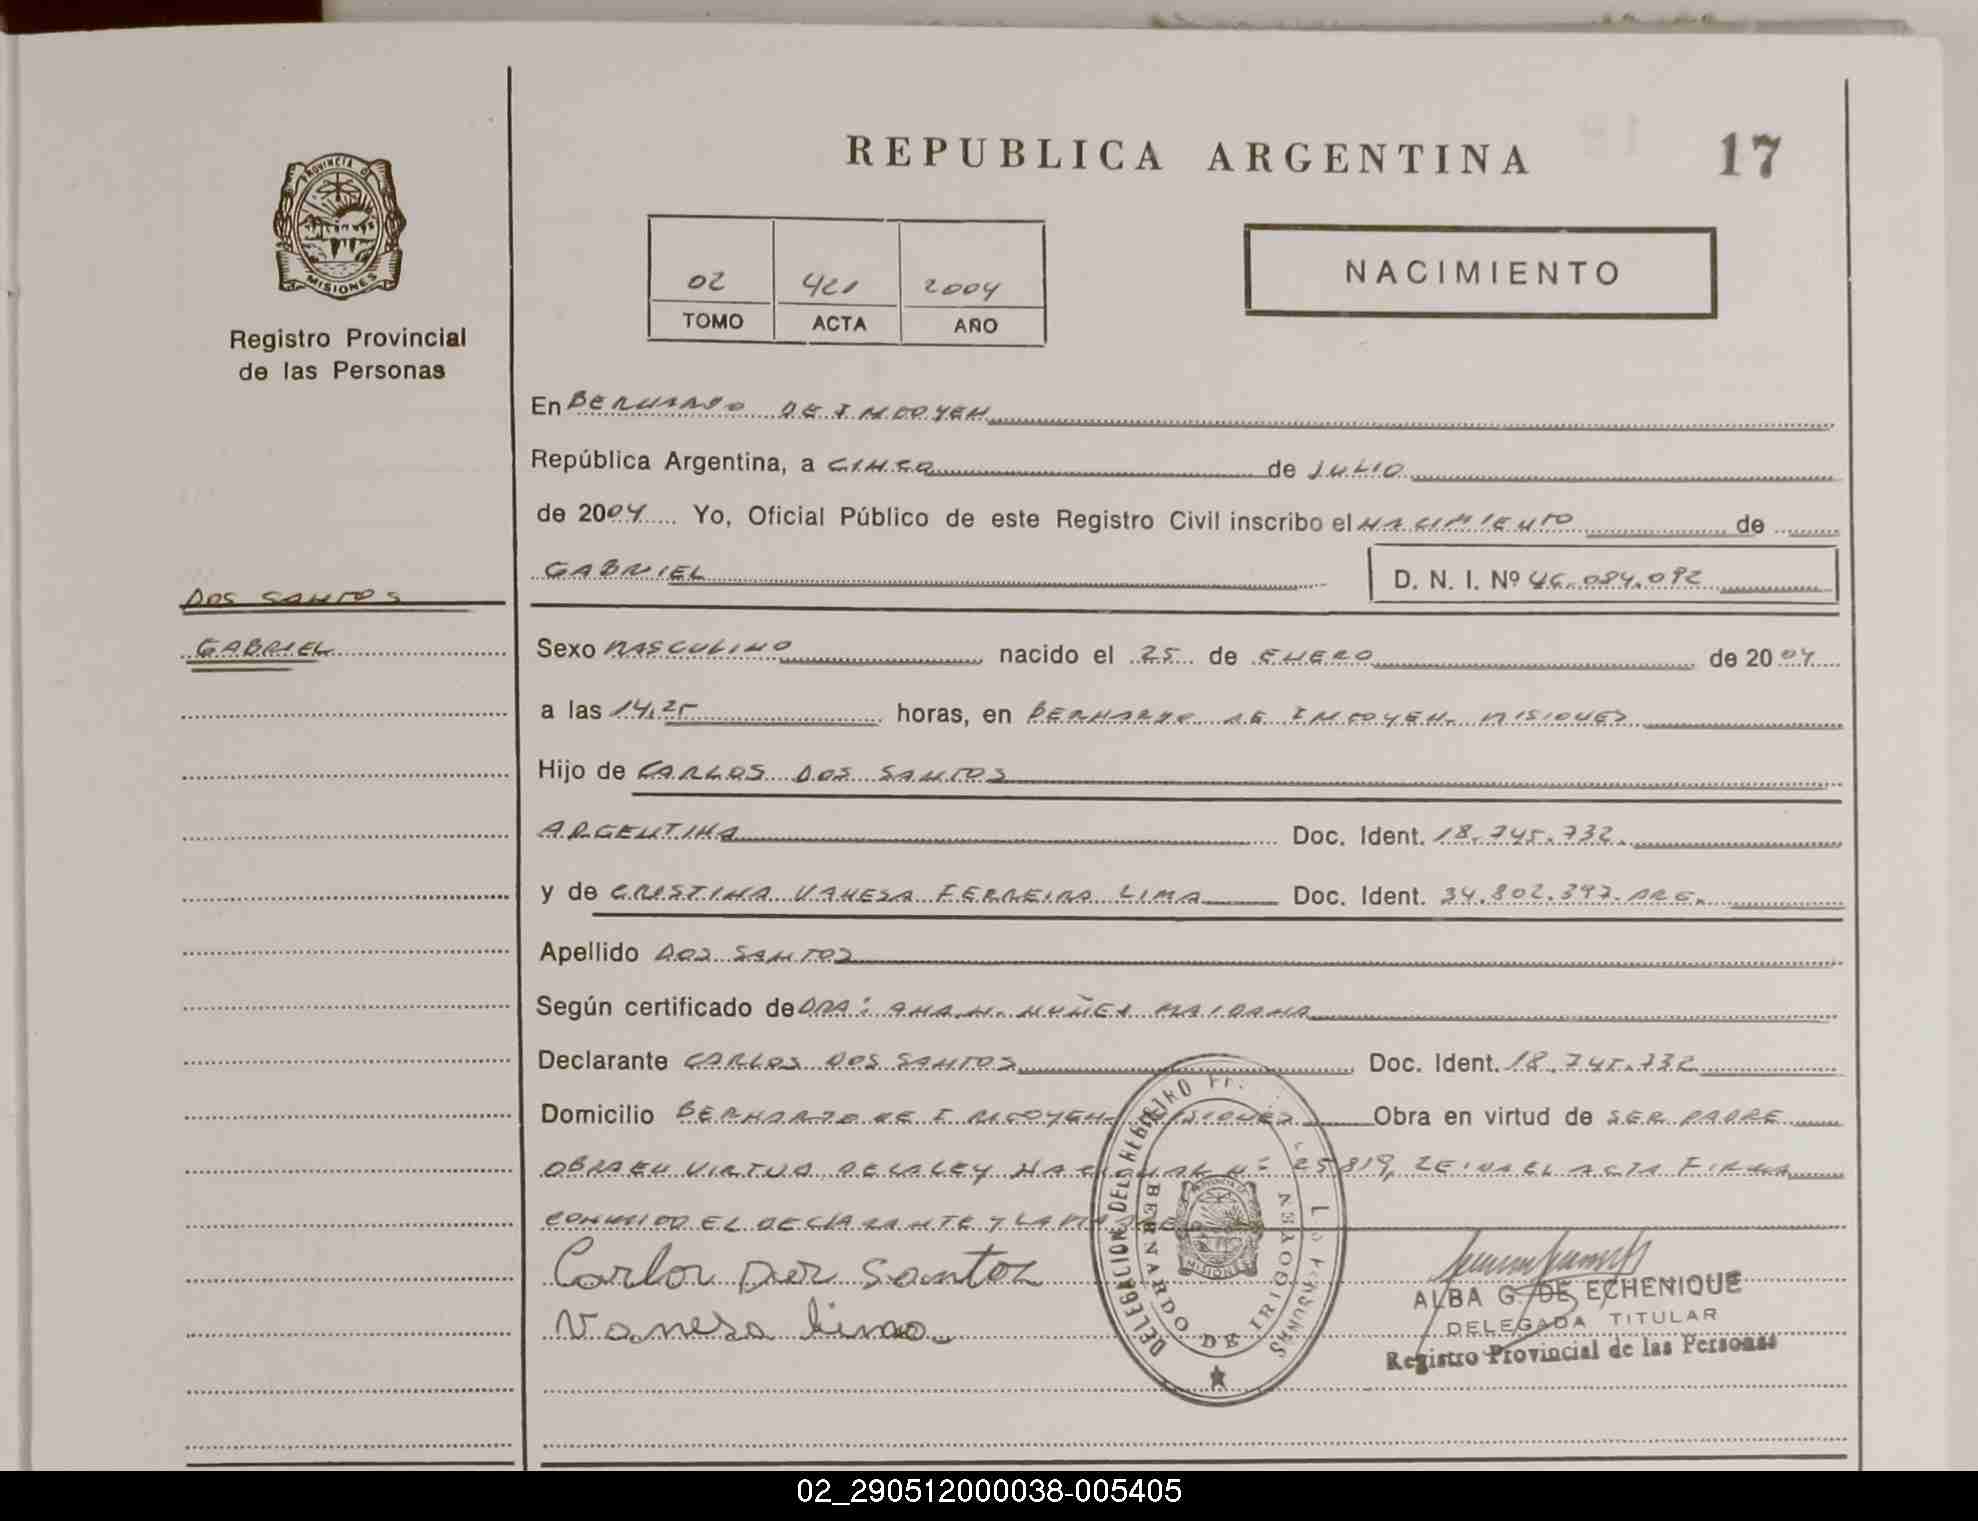 PROVINCIA DE
MISIONES
Registro Provincial
de las Personas
DOS SANTOS
GABRIEL
REPUBLICA ARGENTINA 17
02 421 2004
TOMO ACTA AÑO
NACIMIENTO
En BERNARDO DE IRIGOYEN
República Argentina, a CINCO de JULIO
de 2004 Yo, Oficial Público de este Registro Civil inscribo el NACIMIENTO de
GABRIEL D. N. I. Nº 46.084.092
Sexo MASCULINO nacido el 25 de ENERO de 2004
a las 14,25 horas, en BERNARDO DE IRIGOYEN. MISIONES
Hijo de CARLOS DOS SANTOS
ARGENTINA Doc. Ident. 18.745.732.
y de CRISTINA VANESA FERREIRA LIMA Doc. Ident. 34.802.397. ARG.
Apellido DOS SANTOS
Según certificado de DRA: ANA.N. NUÑEZ MAIDANA
Declarante CARLOS DOS SANTOS Doc. Ident. 18.745.732
Domicilio BERNARDO DE IRIGOYEN MISIONES Obra en virtud de SER PADRE
OBRA EN VIRTUD DE LA LEY NACIONAL Nº 25819, LEIDA EL ACTA FIRMA
CONMIGO EL DECLARANTE Y LA MADRE
Carlos Dos Santos
Vanesa Lima
DELEGACION DEL REGISTRO
BERNARDO DE IRIGOYEN
MISIONES
ALBA G. DE ECHENIQUE
DELEGADA TITULAR
Registro Provincial de las Personas
02_290512000038-005405